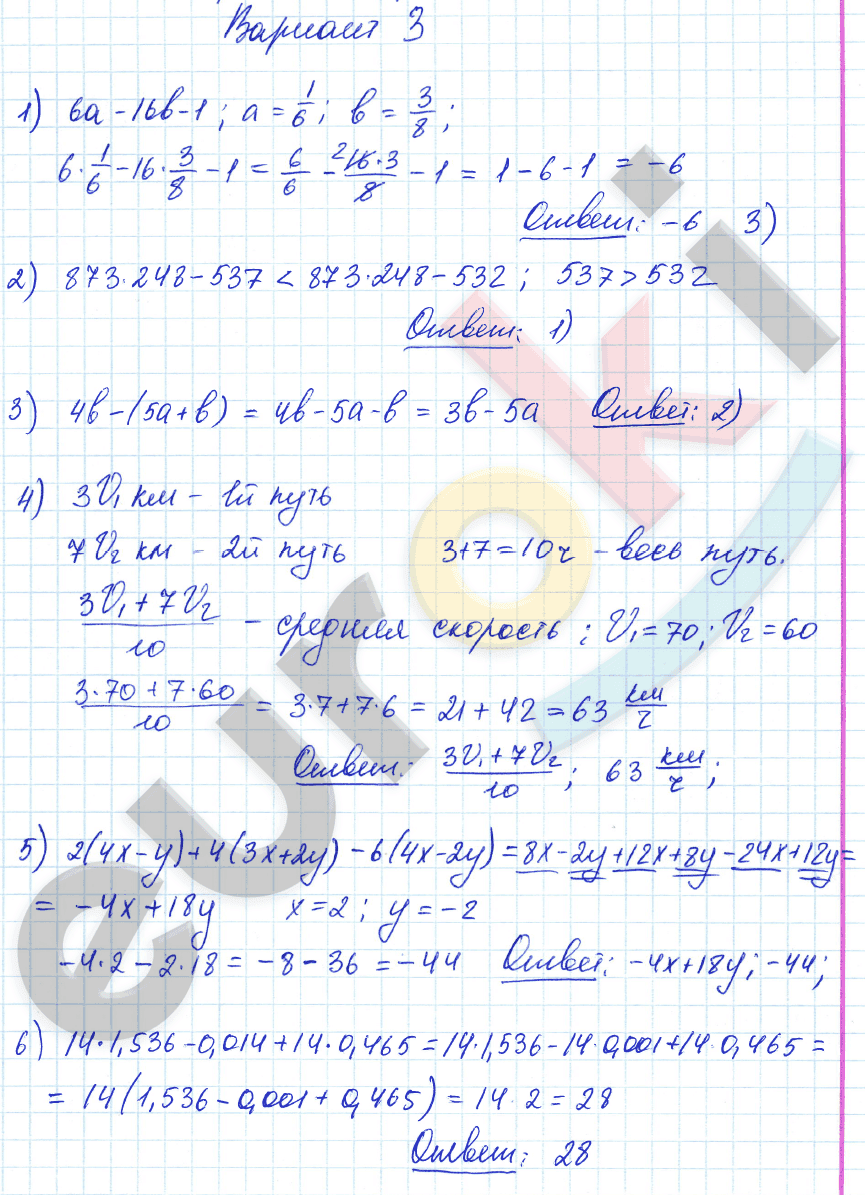 Вариант 3
1) 6a - 16b - 1; a = 1/6; b = 3/8;
6·1/6 - 16·3/8 - 1 = 6/6 - 2 16·3/8 - 1 = 1 - 6 - 1 = -6
Ответ: -6 3)
2) 873·248 - 537 < 873·248 - 532; 537 > 532
Ответ: 1)
3) 4b - (5a + b) = 4b - 5a - b = 3b - 5a Ответ: 2)
4) 3V₁ км - 1й путь
7V₂ км - 2й путь 3+7=10ч - весь путь.
(3V₁ + 7V₂)/10 - средняя скорость; V₁=70; V₂=60
(3·70 + 7·60)/10 = 3·7+7·6 = 21 + 42 = 63 км/ч
Ответ: (3V₁ + 7V₂)/10; 63 км/ч;
5) 2(4x-y)+4(3x+2y)-6(4x-2y)=8x-2y+12x+8y-24x+12y=
= -4x+18y x=2; y=-2
-4·2 - 2·18 = -8 - 36 = -44 Ответ: -4x+18y; -44;
6) 14·1,536-0,014+14·0,465=14·1,536-14·0,001+14·0,465=
= 14(1,536-0,001+0,465) = 14·2 = 28
Ответ: 28
euroki